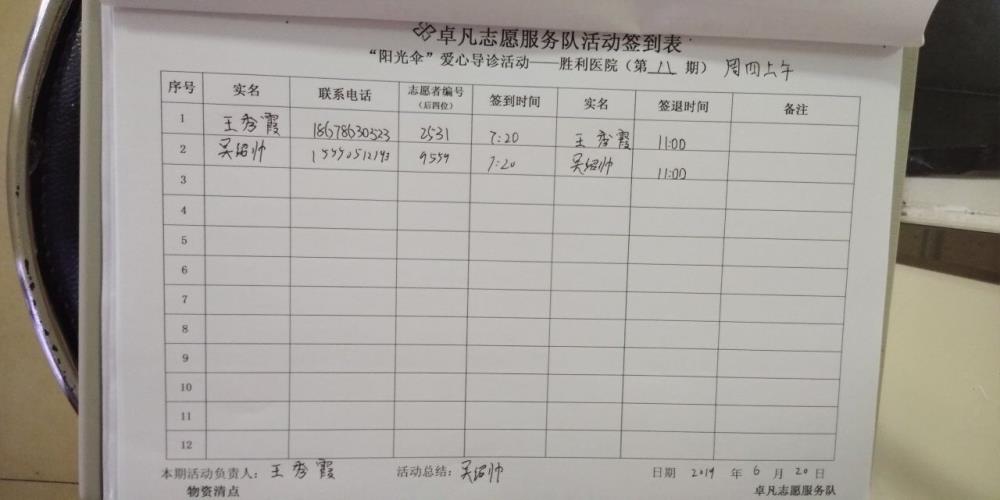 卓凡志愿服务队活动签到表
“阳光伞”爱心导诊活动——胜利医院（第 八 期） 周四上午
序号 实名 联系电话 志愿者编号（后四位） 签到时间 实名 签退时间 备注
1 王秀霞 18678630523 2531 7:20 王秀霞 11:00
2 吴绍帅 9559 7:20 吴绍帅 11:00
3
4
5
6
7
8
9
10
11
12
本期活动负责人：王秀霞 活动总结：吴绍帅 日期 2019 年 6 月 20 日
物资清点 卓凡志愿服务队